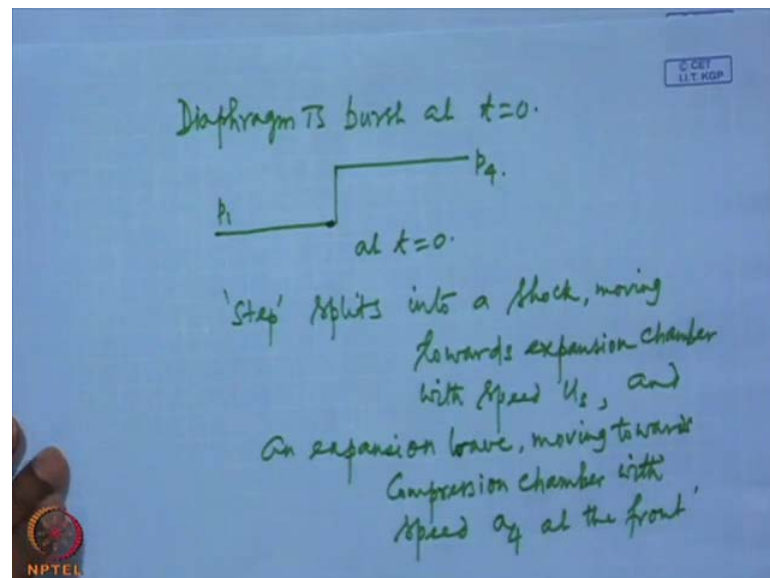 © CET
I.I.T. KGP
Diaphragm is burst at t=0.
p4.
p1
at t=0.
'step' splits into a shock, moving
towards expansion chamber
with speed us, and
an expansion wave, moving towards
Compression chamber with
speed a4 at the front
NPTEL